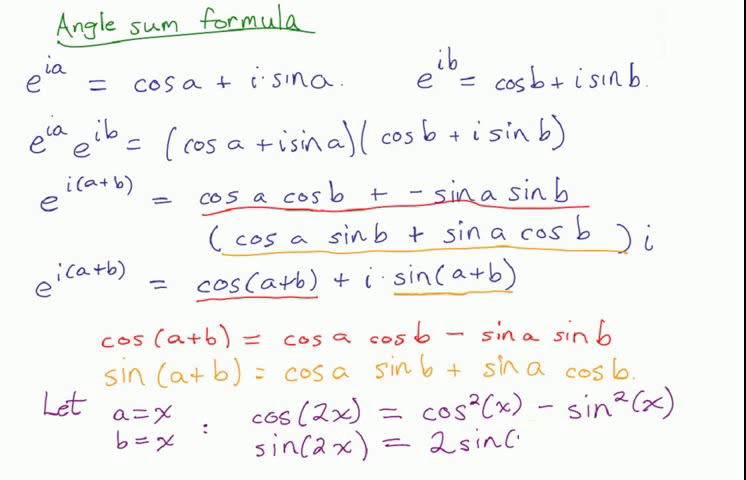 Angle sum formula
e^{ia} = cos a + i·sin a. e^{ib} = cos b + i sin b.
e^{ia} e^{ib} = (cos a + i sin a)(cos b + i sin b)
e^{i(a+b)} = cos a cos b + - sin a sin b
(cos a sin b + sin a cos b) i
e^{i(a+b)} = cos(a+b) + i·sin(a+b)
cos(a+b) = cos a cos b - sin a sin b
sin(a+b) = cos a sin b + sin a cos b.
Let a=x : cos(2x) = cos²(x) - sin²(x)
b=x sin(2x) = 2sin(